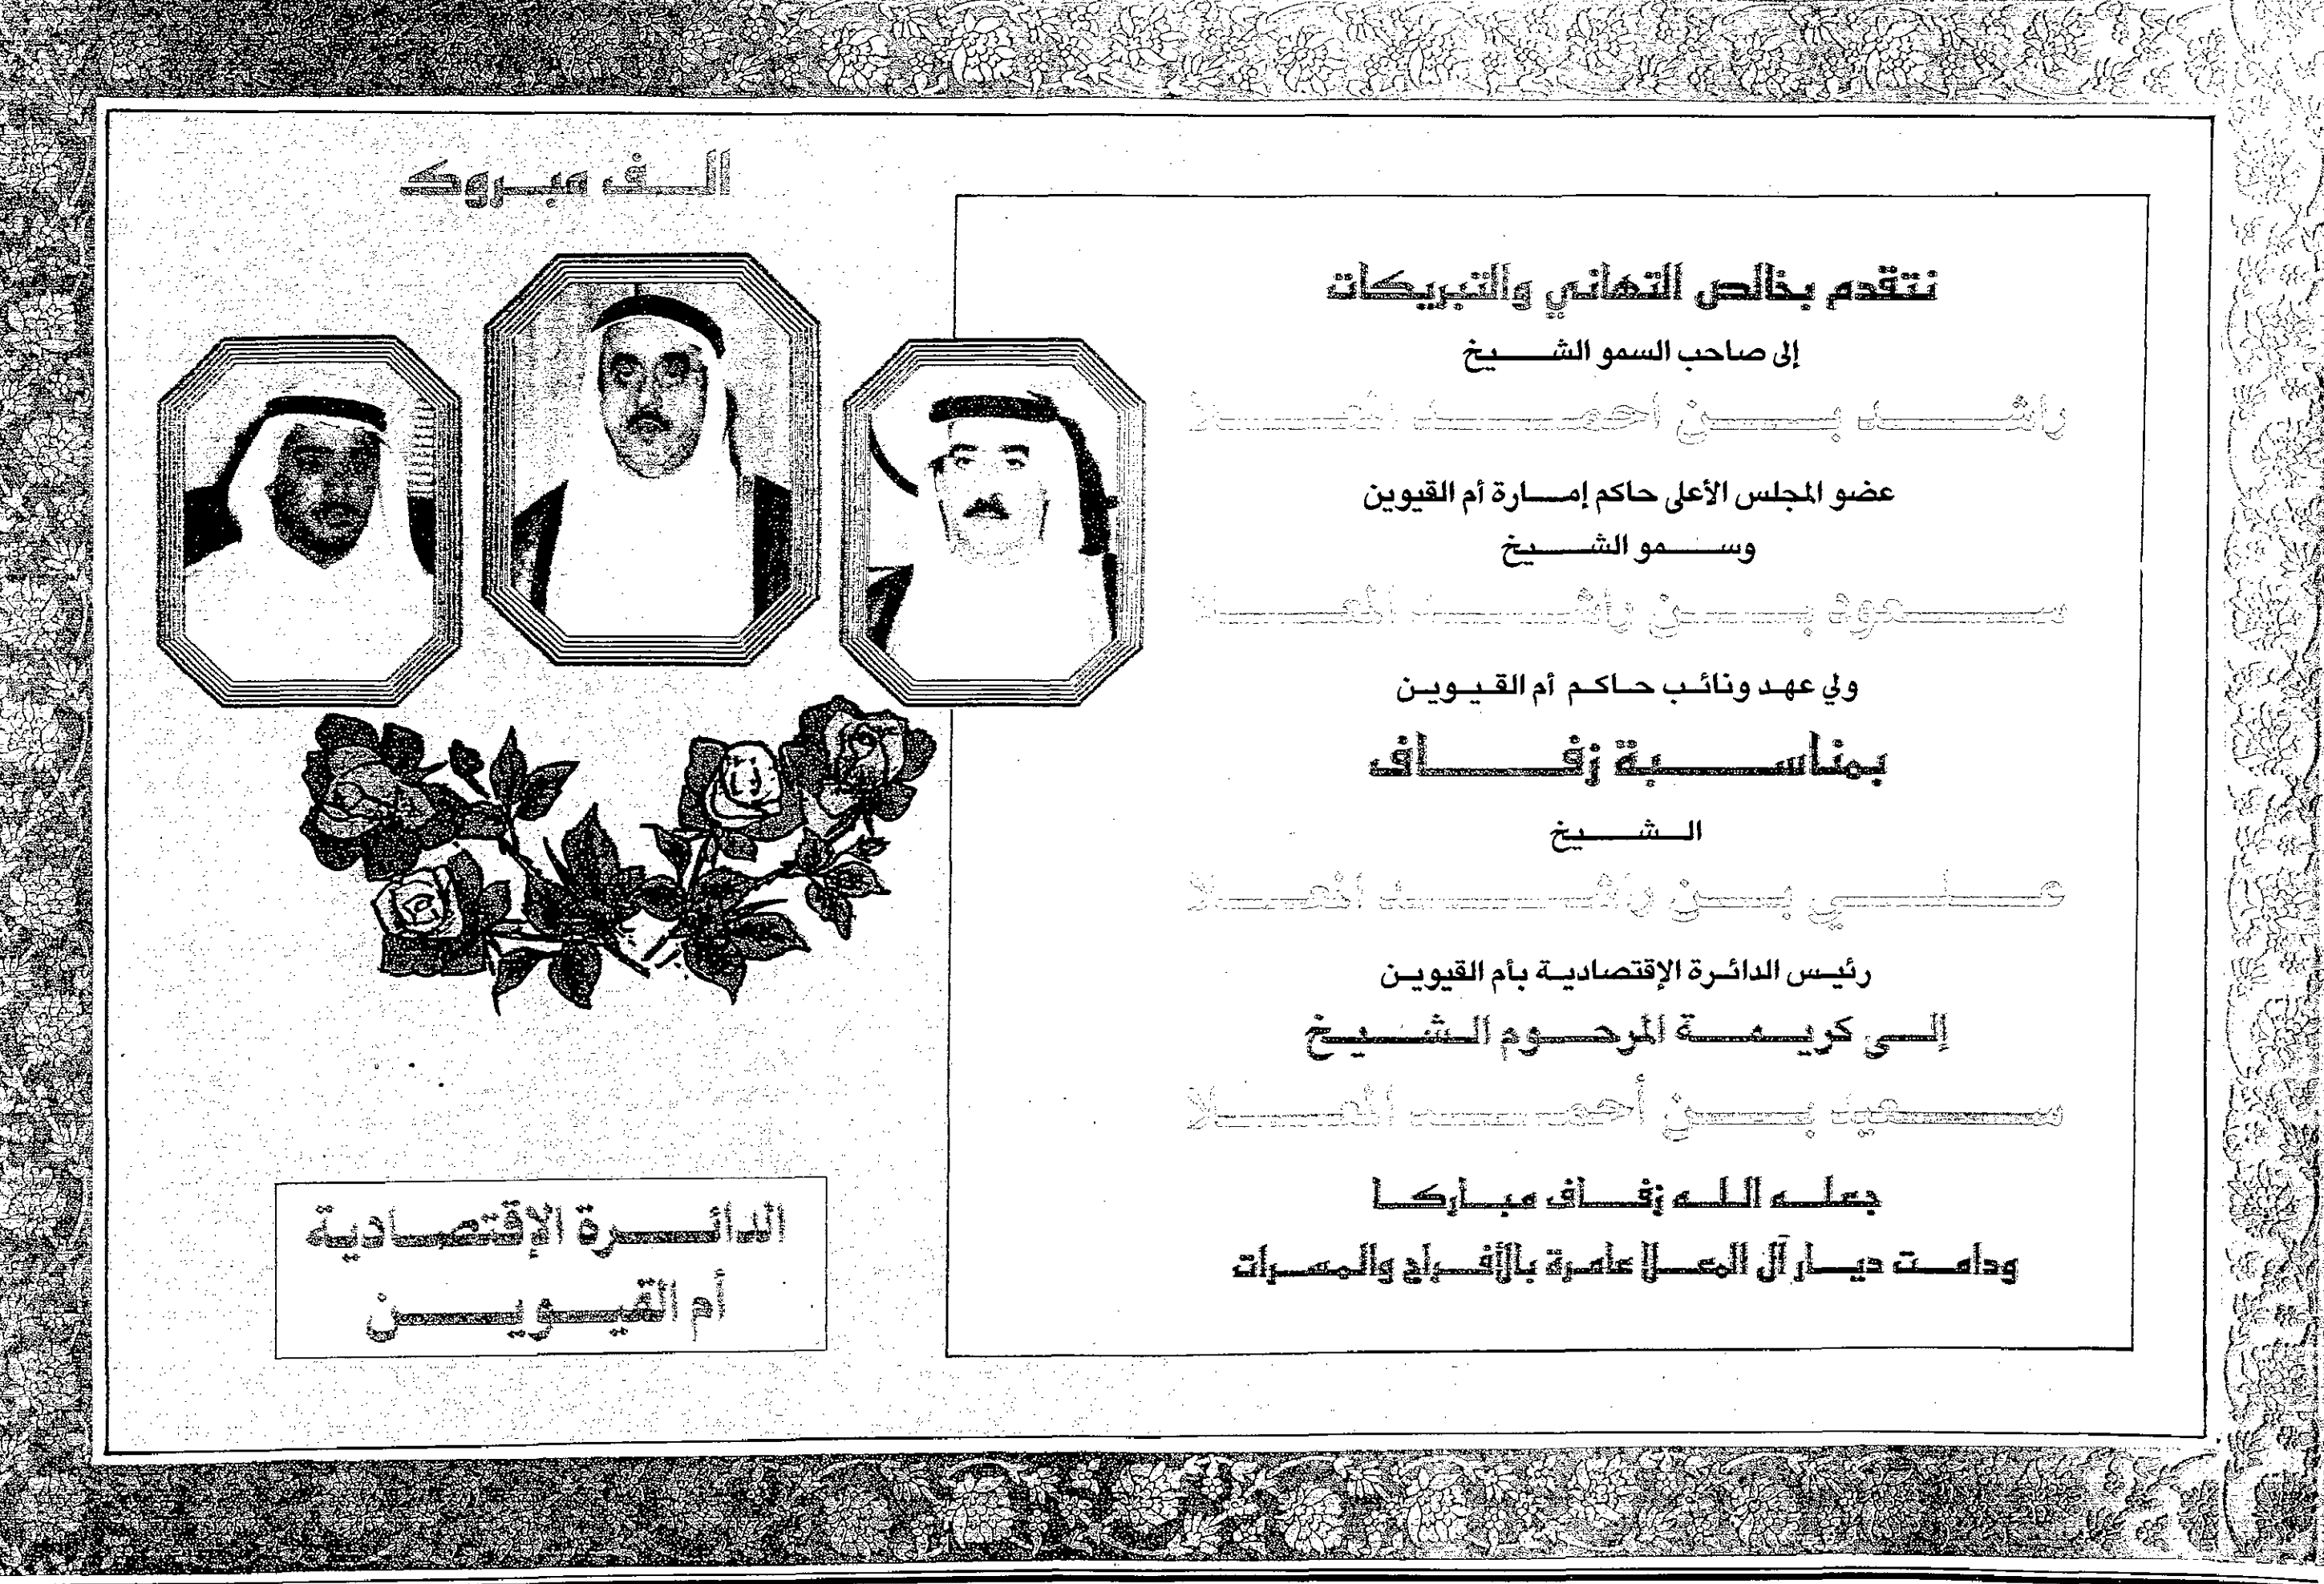 الف مبروك
نتقدم بخالص التهاني والتبريكات
إلى صاحب السمو الشيخ
راشد بن احمد المعلا
عضو المجلس الأعلى حاكم إمارة أم القيوين
وسمو الشيخ
سعود بن راشد المعلا
ولي عهد ونائب حاكم أم القيوين
بمناسبة زفاف
الشيخ
علي بن راشد المعلا
رئيس الدائرة الإقتصادية بأم القيوين
إلى كريمة المرحوم الشيخ
سعيد بن أحمد المعلا
جعله الله زفاف مباركا
ودامت ديار آل المعلا عامرة بالأفراح والمسرات
الدائرة الإقتصادية
أم القيوين